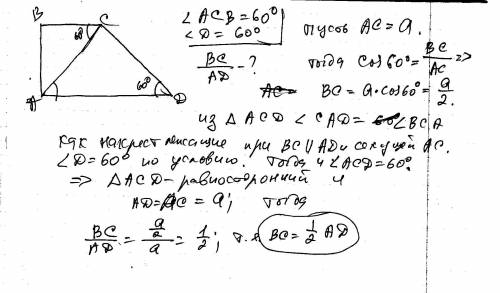 B C
60°
A 60° D
∠ACB = 60°
∠D = 60°
BC/AD - ?
Пусть AC = a.
тогда cos60° = BC/AC =>
BC = a·cos60° = a/2.
из △ACD ∠CAD = ∠BCA
как накрест лежащие при BC||AD и секущей AC.
∠D = 60° по условию. Тогда и ∠ACD = 60°.
=> △ACD - равносторонний и
AD = AC = a; тогда
BC/AD = (a/2)/a = 1/2; т.е. BC = 1/2 AD